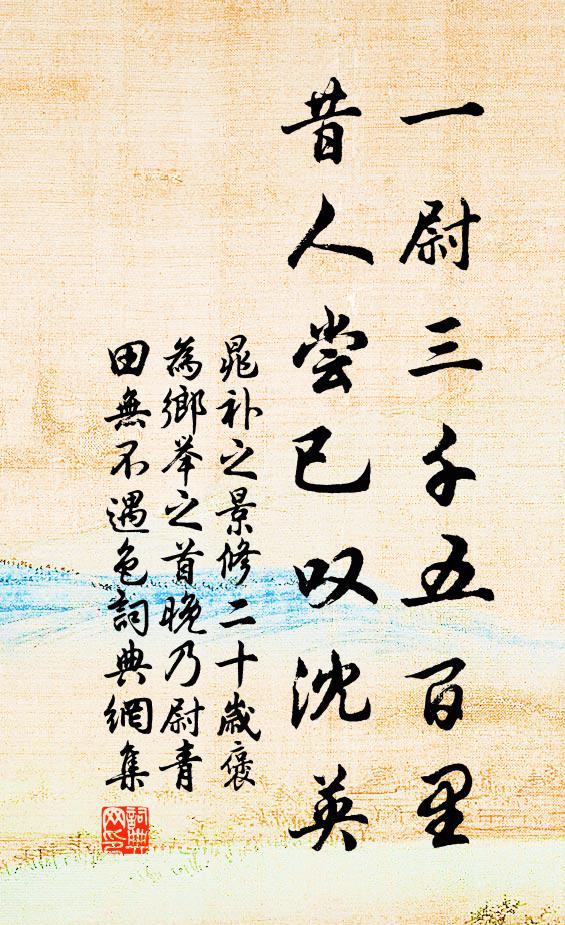 一尉三千五百里
昔人尝已叹沈英
晁补之景修二十歲褒
為鄉举之首晚乃尉青
田無不遇色詞典網集
詞典网印